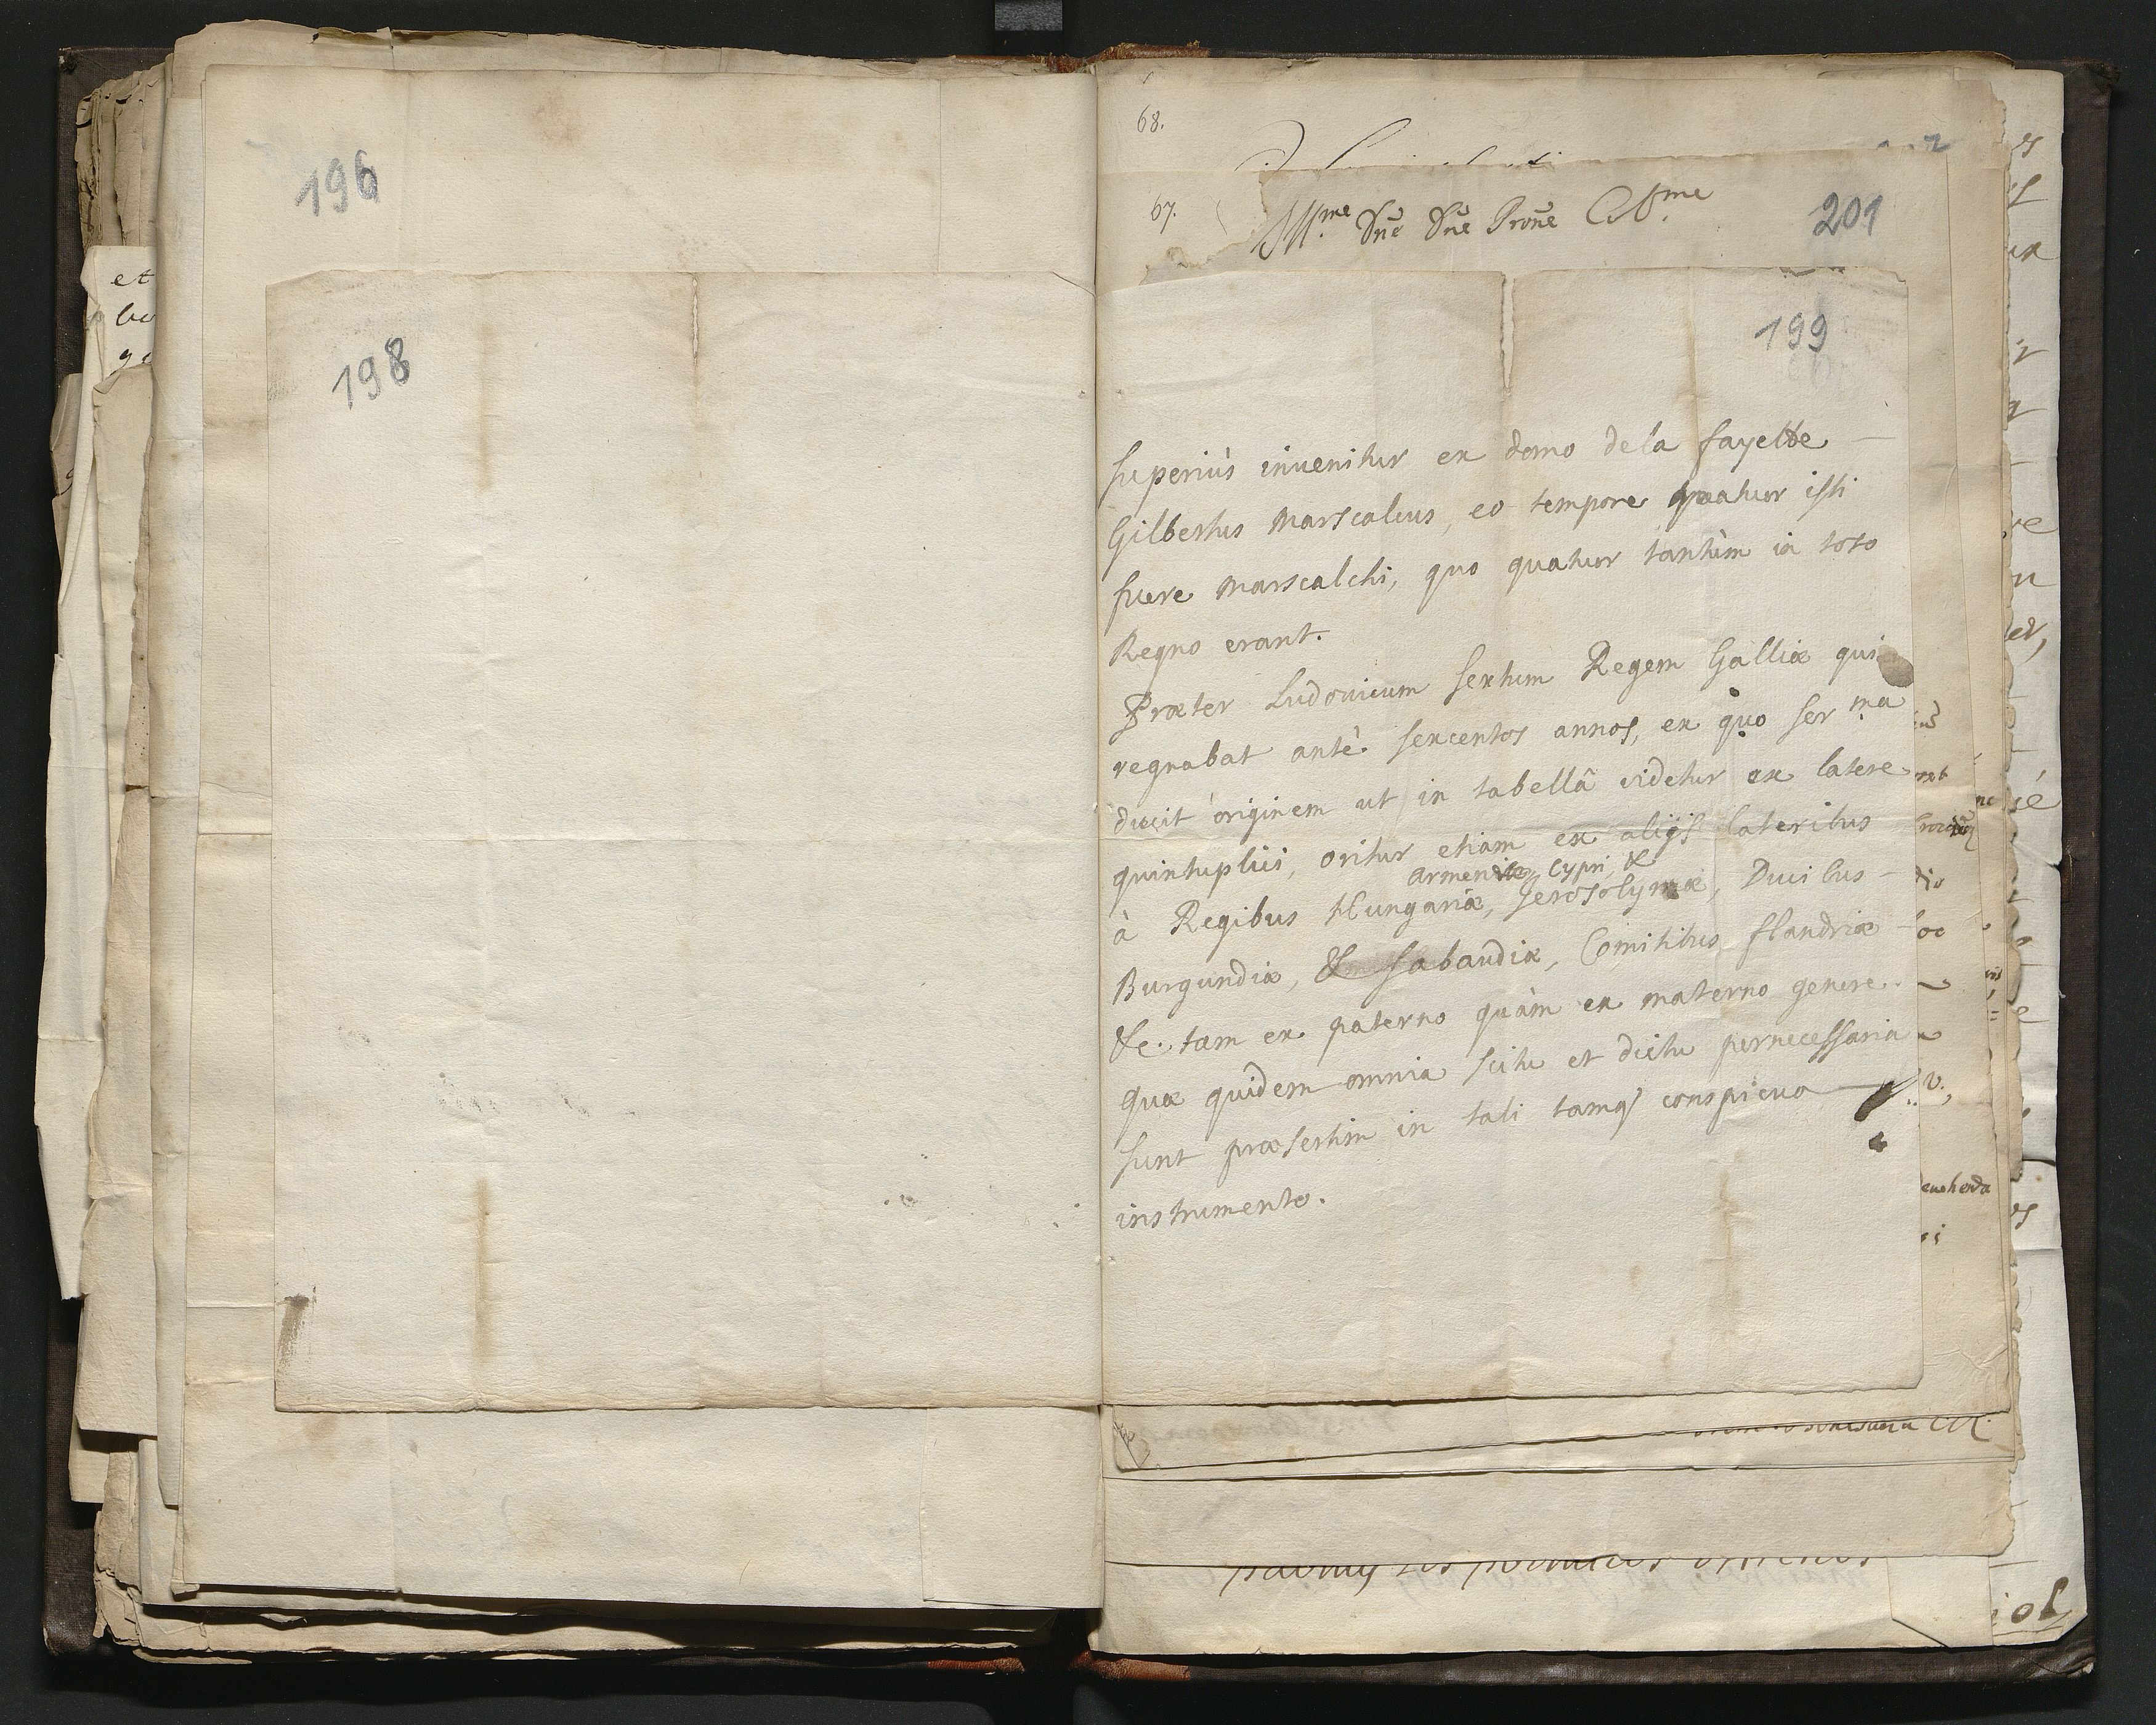 196
198
68.
67.
Illme Dne Dne Prone Colme
201
199
superiùs inuenitur ex domo de la fayette
Gilbertus Marscalcus, eo tempore quatuor isti
fuere Marscalchi, quo quatuor tantùm in toto
Regno erant.
Præter Ludouicum sextum Regem Galliæ qui
regnabat antè sexcentos annos, ex quo ser ma
ducit originem ut in tabellâ videtur ex latere
quintuplici, oritur etiam ex alijs lateribus
Armeniæ, Cypri, &
à Regibus Hungariæ, Jerosolymæ, Ducibus
Burgundiæ, & Sabaudiæ, Comitibus flandriæ
&c. tam ex paterno quàm ex materno genere.
quæ quidem omnia scitu et dictu pernecessaria
sunt præsertim in tali tamq conspicuo
instrumento.